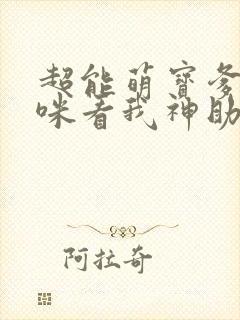 超能萌寶爹
咪看我神助
阿拉奇